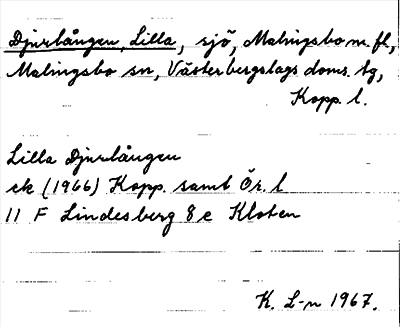 Djurlången, Lilla, sjö, Malingsbo m. fl,
Malingsbo sn, Västerbergslags doms. tg,
Kopp. l.
Lilla Djurlången
ek (1966) Kopp. samt Ör. l
11 F Lindesberg 8 e Kloten
K. L-n 1967.